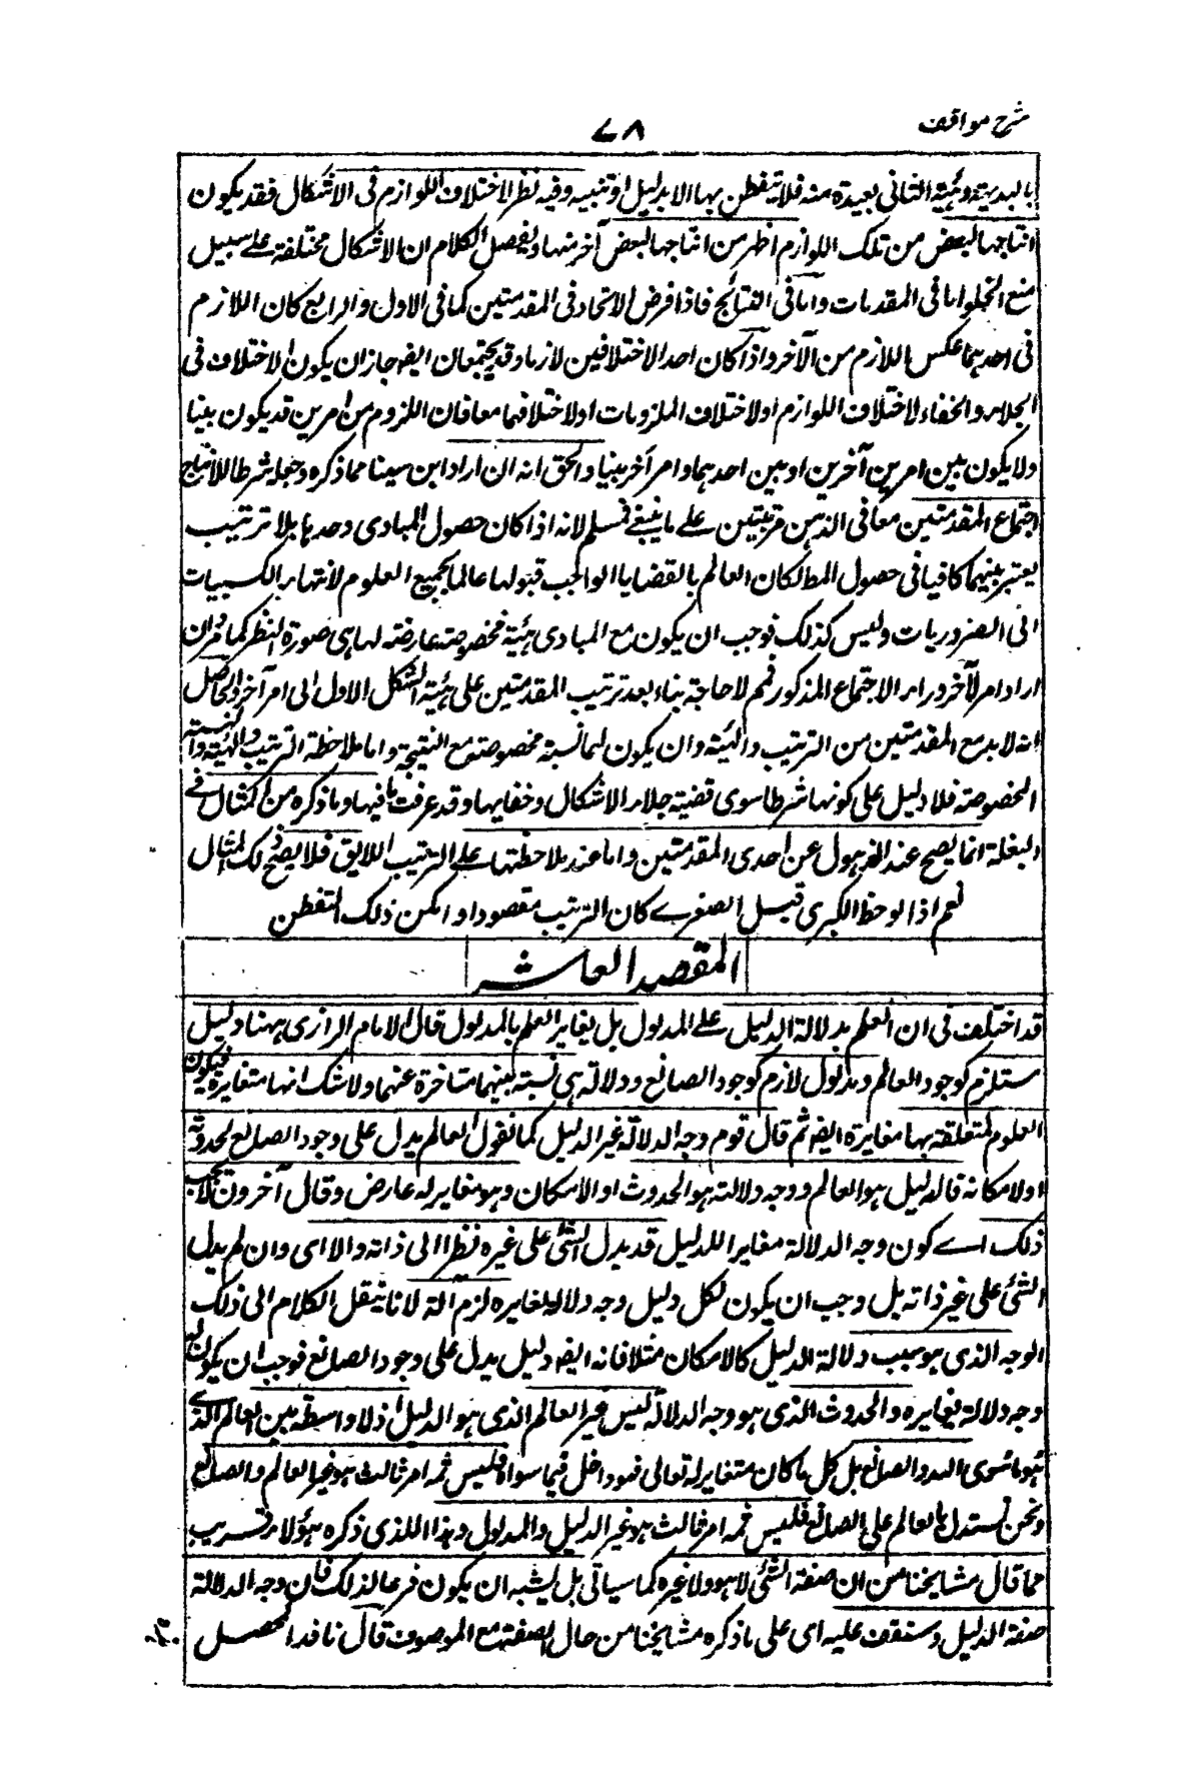 شرح مواقف
٧٨
بالبديهة وهيئة الثانى بعيدة منه فلا يتفطن بها الا بدليل او تنبيه وفيه نظر لاختلاف اللوازم فى الاشكال فقد يكون
انتاجها لبعض من تلك اللوازم اظهر من انتاجها لبعض آخر منها وتفصيل الكلام ان الاشكال مختلفة على سبيل
منع الخلو اما فى المقدمات واما فى النتائج فاذا فرض الاتحاد فى المقدمتين كما فى الاول والرابع كان اللازم
فى احدهما عكس اللازم من الآخر واذا كان احد الاختلافين لازما وقد يجتمعان ايضا جاز ان يكون الاختلاف فى
الجلاء والخفاء لاختلاف اللوازم او لاختلاف الملزومات او لاختلافهما معا فان اللزوم من امرين قد يكون بينا
ولا يكون بين امرين آخرين او بين احدهما وامر آخر بينا والحق انه ان اراد ابن سينا مما ذكره وجعله شرطا للانتاج
اجتماع المقدمتين معا فى الذهن مرتبتين على ما ينبغى فمسلم لانه اذا كان حصول المبادى وحدها بلا ترتيب
يعتبر بينهما كافيا فى حصول المط لكان العالم بالقضايا الواجب قبولها عالما بجميع العلوم لانتهاء الكسبيات
الى الضروريات وليس كذلك فوجب ان يكون مع المبادى هيئة مخصوصة عارضة لها هى صورة النظر كما مر وان
اراد امرا آخر وراء الاجتماع المذكور فمم لا حاجة بنا بعد ترتيب المقدمتين على هيئة الشكل الاول الى امر آخر والحاصل
انه لا بد مع المقدمتين من الترتيب والهيئة وان يكون لهما نسبة مخصوصة مع النتيجة واما ملاحظة الترتيب والهيئة والنسبة
المخصوصة فلا دليل على كونها شرطا سوى قضية جلاء الاشكال وخفايها وقد عرفت ما فيها وما ذكره من المثال فى
البغلة انما يصح عند الذهول عن احدى المقدمتين واما عند ملاحظتهما على الترتيب اللايق فلا يصح ذلك المثال
نعم اذا لوحظ الكبرى قبل الصغرى كان الترتيب مقصودا وامكن ذلك التفطن
المقصد العاشر
قد اختلف فى ان العلم بدلالة الدليل على المدلول هل يغاير العلم بالمدلول قال الامام الرازى ههنا دليل
مستلزم كوجود العالم ومدلول لازم كوجود الصانع ودلالة هى نسبة بينهما متاخرة عنهما ولا شك انها متغايرة فيكون
العلوم المتعلقة بها مغايرة ايضا ثم قال قوم وجه الدلالة غير الدليل كما نقول العالم يدل على وجود الصانع لحدوثه
او لامكانه فالدليل هو العالم ووجه دلالته هو الحدوث او الامكان وهو مغاير له عارض وقال آخرون لا يجب
ذلك اى كون وجه الدلالة مغايرا للدليل قد يدل الشئ على غيره نظرا الى ذاته والا اى وان لم يدل
الشئ على غيره ذاته بل وجب ان يكون لكل دليل وجه دلالة يغايره لزم التس لانا ننقل الكلام الى ذلك
الوجه الذى هو سبب دلالة الدليل كالامكان مثلا فانه ايضا دليل يدل على وجود الصانع فوجب ان يكون له
وجه دلالة يغايره والحدوث الذى هو وجه الدلالة ليس غير العالم الذى هو الدليل اذ لا واسطة بين العالم الذى
هو ما سوى الله والصانع بل كل ما كان متغايرا له تعالى فهو داخل فيما سواه فليس ثمه امر ثالث هو غير العالم والصانع
ونحن نستدل بالعالم على الصانع فليس ثمه امر ثالث هو غير الدليل والمدلول وهذا الذى ذكره هؤلاء قريب
مما قال مشايخنا من ان صفة الشئ لا هو ولا غيره كما سياتى بل يشبه ان يكون فرعا لذلك فان وجه الدلالة
صفة الدليل وستقف عليه اى على ما ذكره مشايخنا من حال الصفة مع الموصوف قال ناقد المحصل